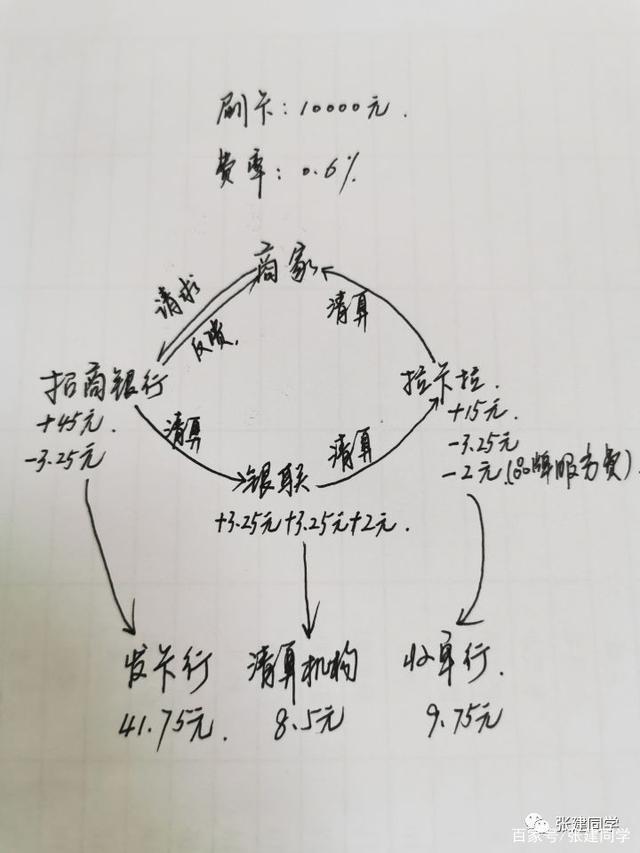 刷卡：10000元.
费率：0.6%
商家
请求
反馈.
清算
招商银行
+45元.
-3.25元
拉卡拉.
+15元.
-3.25元
-2元(品牌服务费).
清算
清算
银联
+3.25元+3.25元+2元.
发卡行
41.75元.
清算机构
8.5元
收单行.
9.75元
张建同学
百家号/张建同学